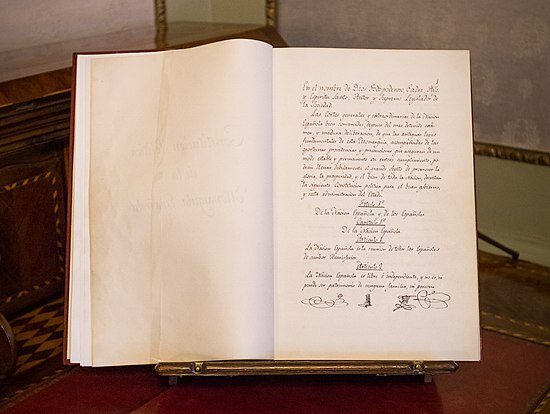 1
En el nombre de Dios Todopoderoso, Padre, Hijo,
y Espíritu Santo, Autor y Supremo Legislador de
la Sociedad.
Las Cortes generales y extraordinarias de la Nación
Española, bien convencidas, despues del mas detenido exa-
men, y madura deliberacion, de que las antiguas leyes
fundamentales de esta Monarquia, acompañadas de las
oportunas providencias y precauciones, que aseguren de un
modo estable y permanente su entero cumplimiento, po-
drán llenar debidamente el grande objeto de promover la
gloria, la prosperidad, y el bien de toda la Nacion, decretan
la siguiente Constitucion politica para el buen gobierno,
y recta administracion del Estado.
Título 1º
De la Nacion Española y de los Españoles
Capítulo 1º
De la Nacion Española.
Artículo 1
La Nacion Española es la reunion de todos los Españoles
de ambos Hemisferios.
Artículo 2
La Nacion Española es libre é independiente, y no es, ni
puede ser patrimonio de ninguna familia, ni persona